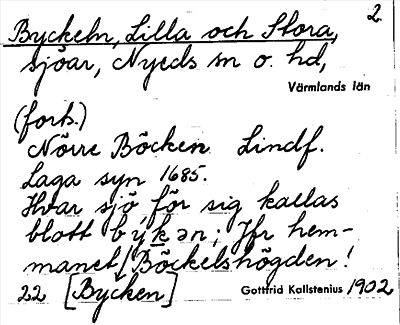 2
Byckeln, Lilla och Stora,
sjöar, Nyeds sn o. hd,
Värmlands län
(forts.)
Nörre Böcken Lindf.
Laga syn 1685.
Hvar sjö för sig kallas
blott bykən; Jfr hem-
manet Böckelshögden!
22 [Bycken] Gottfrid Kallstenius 1902